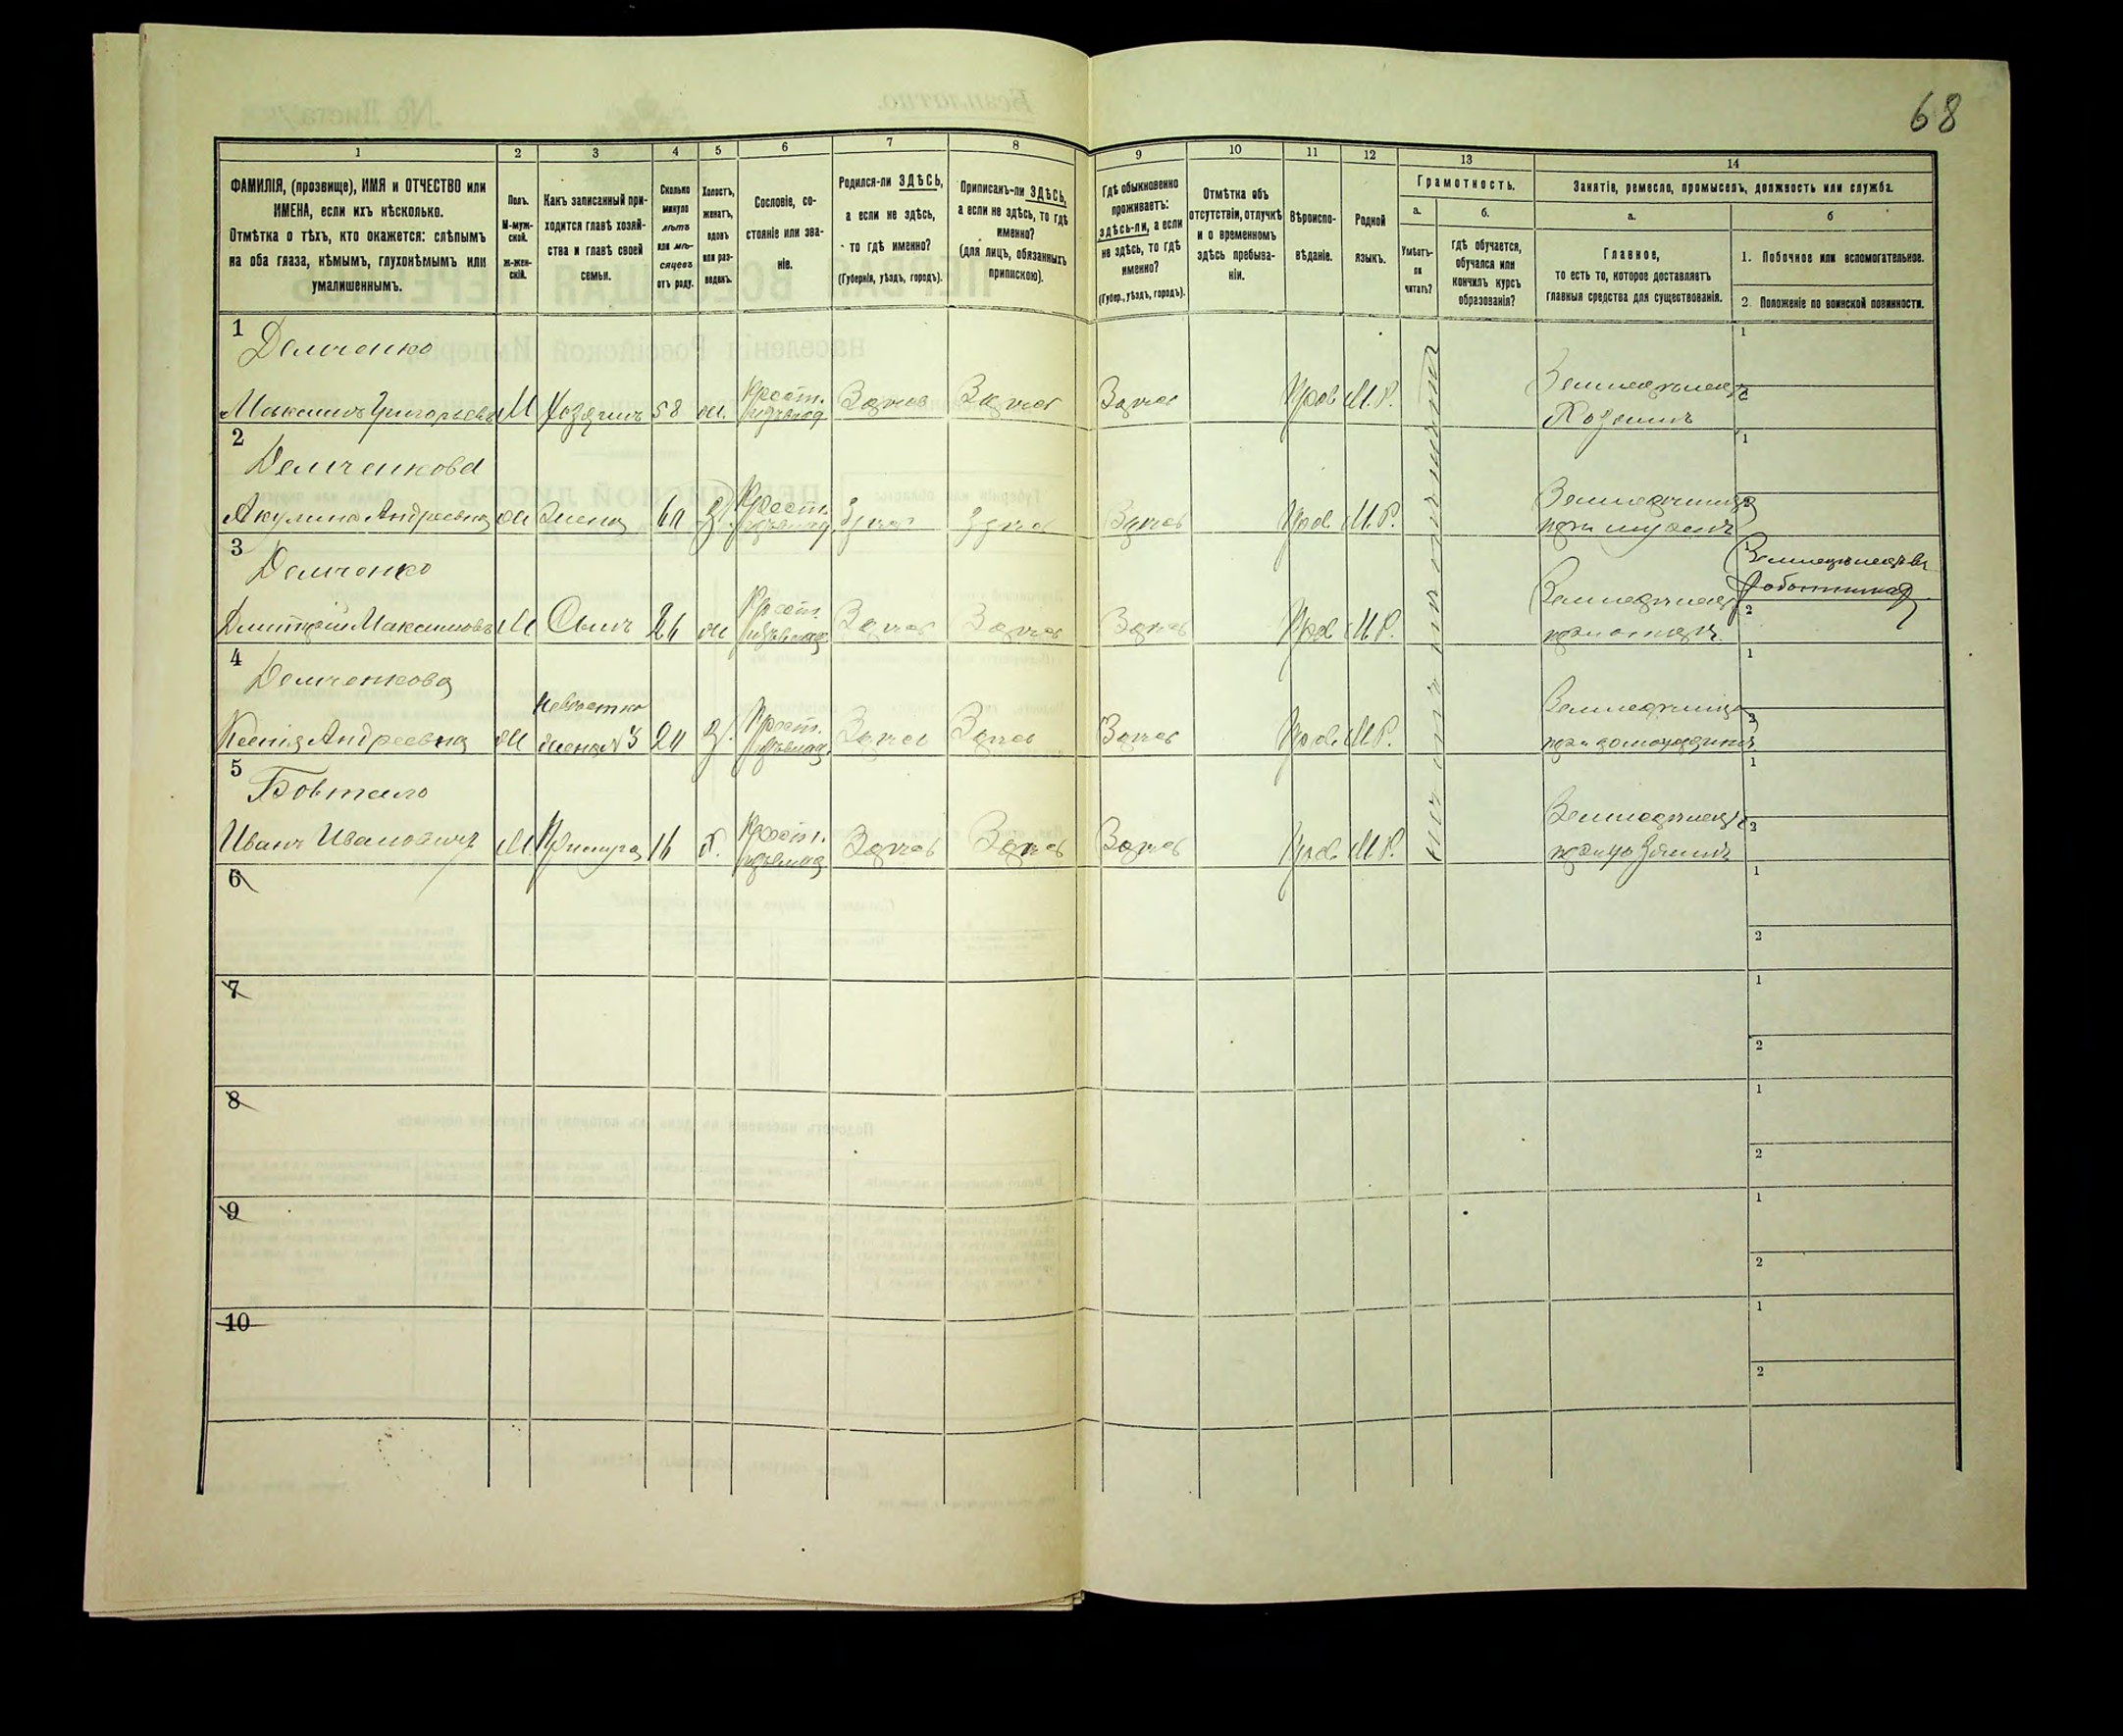 68
1 2 3 4 5 6 7 8 9 10 11 12 13 14
ФАМИЛІЯ, (прозвище), ИМЯ и ОТЧЕСТВО или
ИМЕНА, если ихъ нѣсколько.
Отмѣтка о тѣхъ, кто окажется: слѣпымъ
на оба глаза, нѣмымъ, глухонѣмымъ или
умалишеннымъ.
Полъ.
М-муж-
ской.
Ж-жен-
скій.
Какъ записанный при-
ходится главѣ хозяй-
ства и главѣ своей
семьи.
Сколько
минуло
лѣтъ
или мѣ-
сяцевъ
отъ роду.
Холостъ,
женатъ,
вдовъ
или раз-
веденъ.
Сословіе, со-
стояніе или зва-
ніе.
Родился-ли ЗДѢСЬ,
а если не здѣсь,
то гдѣ именно?
(Губернія, уѣздъ, городъ).
Приписанъ-ли ЗДѢСЬ,
а если не здѣсь, то гдѣ
именно?
(для лицъ, обязанныхъ
припискою).
Гдѣ обыкновенно
проживаетъ:
здѣсь-ли, а если
не здѣсь, то гдѣ
именно?
(Губер., уѣздъ, городъ).
Отмѣтка объ
отсутствіи, отлучкѣ
и о временномъ
здѣсь пребыва-
ніи.
Вѣроиспо-
вѣданіе.
Родной
языкъ.
Грамотность.
а.
Умѣетъ-
ли
читать?
б.
Гдѣ обучается,
обучался или
кончилъ курсъ
образованія?
Занятіе, ремесло, промыселъ, должность или служба.
а.
Главное,
то есть то, которое доставляетъ
главныя средства для существованія.
б
1. Побочное или вспомогательное.
2. Положеніе по воинской повинности.
1 Демченко 1
Земледѣлецъ 2
Максимъ Григорьевъ М Хозяинъ 58 ж. Крест. Здѣсь Здѣсь Здѣсь Прав М.Р. Хозяинъ
2 Демченкова 1
2
Акулина Андреевна ж Жена З. Крест. Здѣсь Здѣсь Здѣсь Прав. М.Р. при мужѣ
3 Демченко
Земледѣлецъ 2
Дмитрій Максимовъ М Сынъ 26 ж Крест. Здѣсь Здѣсь Здѣсь Прав М.Р. при отцѣ
4 Демченкова 1
Невѣстка 2
Ксенія Андреевна ж жена №3 24 З. Крест. Здѣсь Здѣсь Здѣсь Прав. М.Р.
5 Бовтало 1
Земледѣлецъ 2
Иванъ Ивановичъ М. 16 Х. Крест. Здѣсь Здѣсь Здѣсь Прав. М.Р. при хозяинѣ
6 1
2
7 1
2
8 1
2
9 1
2
10 1
2